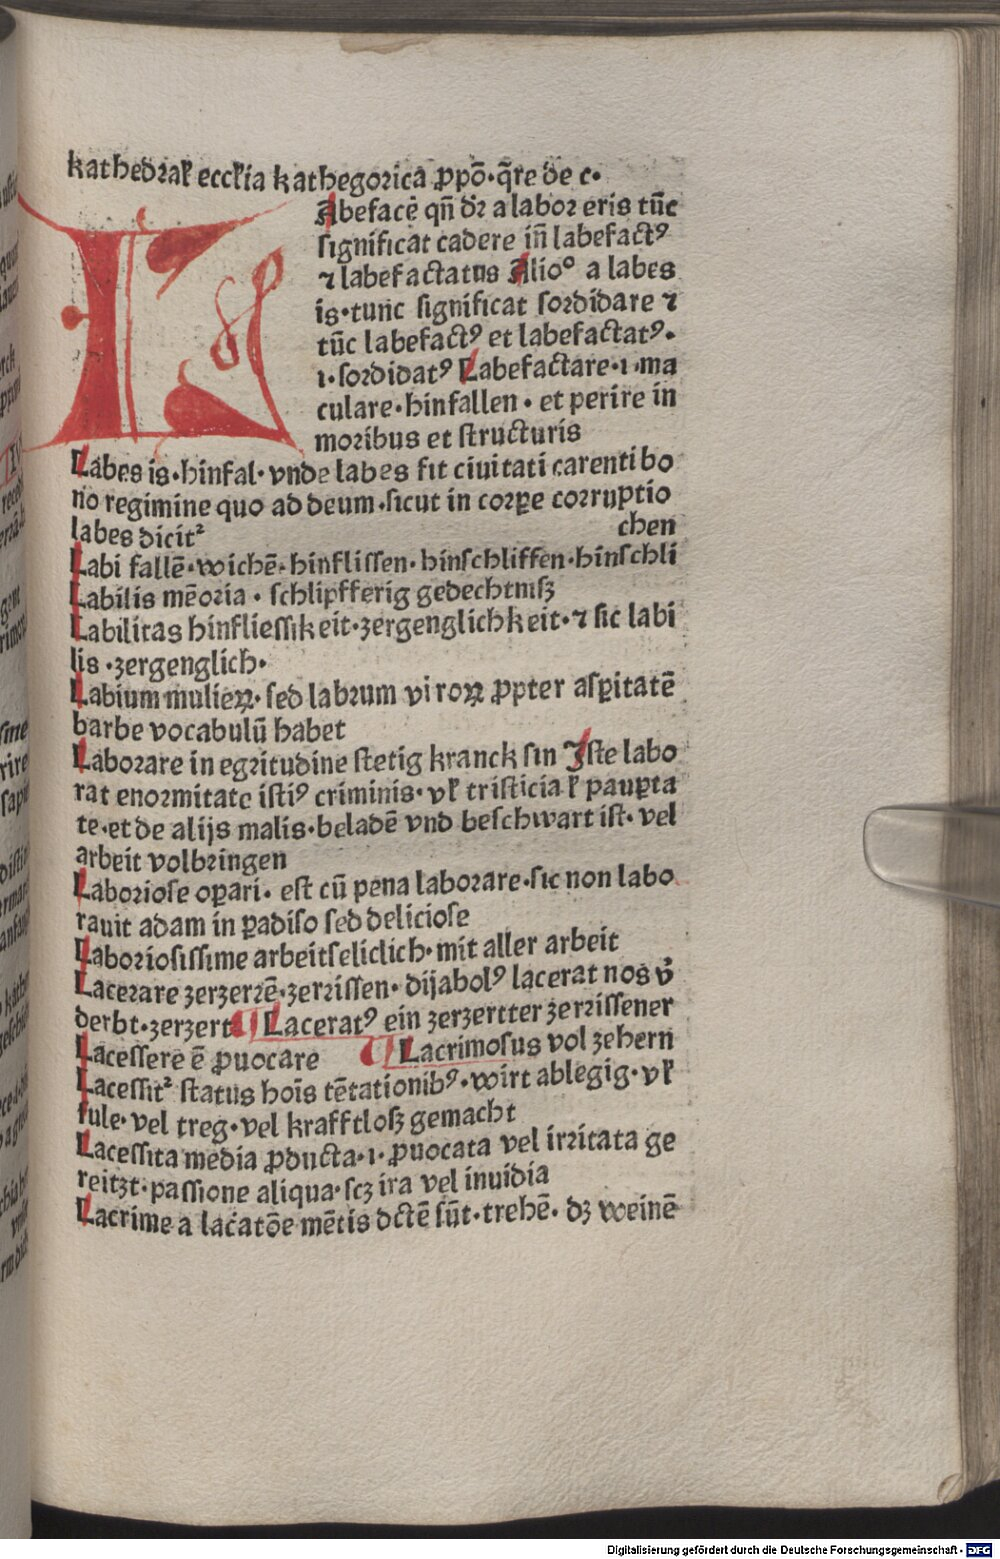 kathedraꝉ eccꝉia kathegorica ꝓpō·q̄re de c·
L Abefacē qn̄ dr̄ a labor eris tūc
ſignificat cadere in̄ labefactꝰ
⁊ labefactatus Alioº a labes
is·tunc ſignificat ſordidare ⁊
tūc labefactꝰ et labefactatꝰ·
ı·ſordidatꝰ Labefactare·ı·ma
culare·hinfallen· et perire in
moribus et ſtructuris
Labes is·hinfal·vnde labes fit ciuitati carenti bo
no regimine quo ad deum·ſicut in corꝑe corruptio
labes dicit᷑ chen
Labi fallē·wichē·hinfliſſen·hinſchliffen·hinſchli
Labilis mēoria·ſchlipfferig gedechtniſʒ
Labilitas hinflieſſikeit·zergenglichkeit·⁊ ſic labi
lis·zergenglich·
Labium mulieꝝ·ſed labrum viroꝝ ꝓpter aſꝑitatē
barbe vocabulū habet
Laborare in egritudine ſtetig kranck ſin Iſte labo
rat enormitate iſtiꝰ criminis·vꝉ triſticia ꝉ pauꝑta
te·et de alijs malis·beladē vnd beſchwart iſt·vel
arbeit volbringen
Laborioſe oꝑari·eſt cū pena laborare·ſic non labo
rauit adam in ꝑadiſo ſed delicioſe
Laborioſiſſime arbeitſeliclich·mit aller arbeit
Lacerare zerzerrē·zerriſſen·dijabolꝰ lacerat nos v̄
derbt·zerzert ¶ Laceratꝰ ein zerzertter zerriſſener
Laceſſere ē ꝓuocare ¶ Lacrimoſus vol zehern
Laceſſit᷑ ſtatus hoīs tētationibꝰ·wirt ablegig·vꝉ
fule·vel treg·vel krafftloſʒ gemacht
Laceſſita media ꝓducta·ı·ꝓuocata vel irritata ge
reitzt·paſſione aliqua·ſcʒ ira vel inuidia
Lacrime a lac̄atōe mētis dctē ſūt·trehē·dʒ weinē
Digitalisierung gefördert durch die Deutsche Forschungsgemeinschaft - DFG